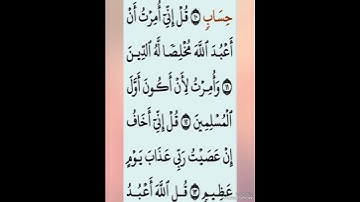 حِسَابٍ ۝١٠ قُلْ إِنِّىٓ أُمِرْتُ أَنْ
أَعْبُدَ ٱللَّهَ مُخْلِصًا لَّهُ ٱلدِّينَ
۝١١ وَأُمِرْتُ لِأَنْ أَكُونَ أَوَّلَ
ٱلْمُسْلِمِينَ ۝١٢ قُلْ إِنِّىٓ أَخَافُ
إِنْ عَصَيْتُ رَبِّى عَذَابَ يَوْمٍ
عَظِيمٍ ۝١٣ قُلِ ٱللَّهَ أَعْبُدُ